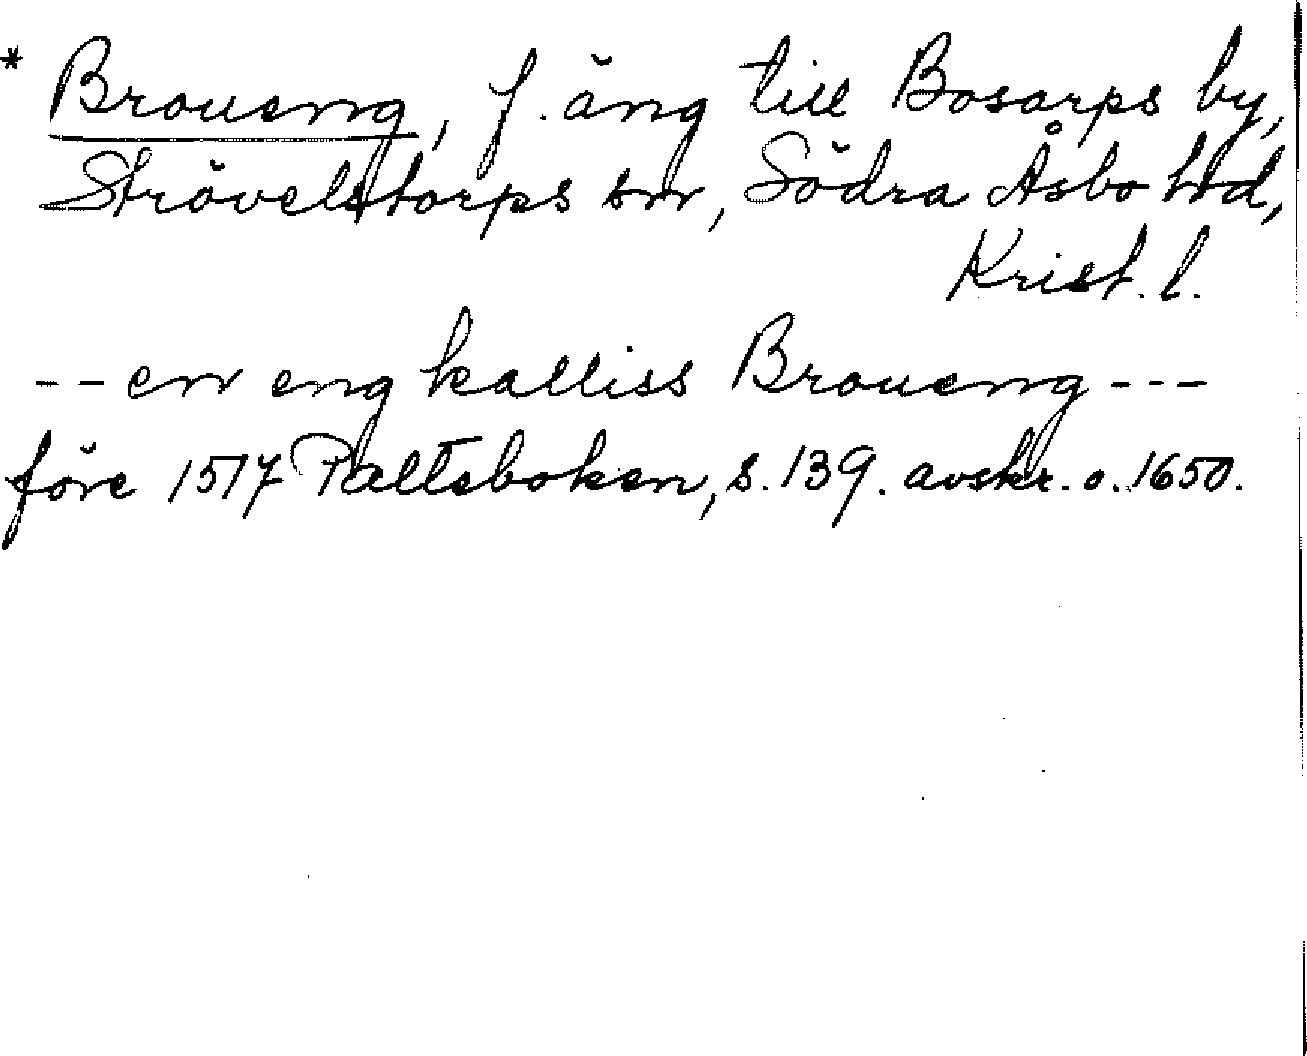 * Broueng, f. äng till Bosarps by,
Strövelstorps sn, Södra Åsbo hd,
Krist. l.
-- en eng kalliss Broueng ---
före 1517 Paltsboken, s. 139. avskr. o. 1650.